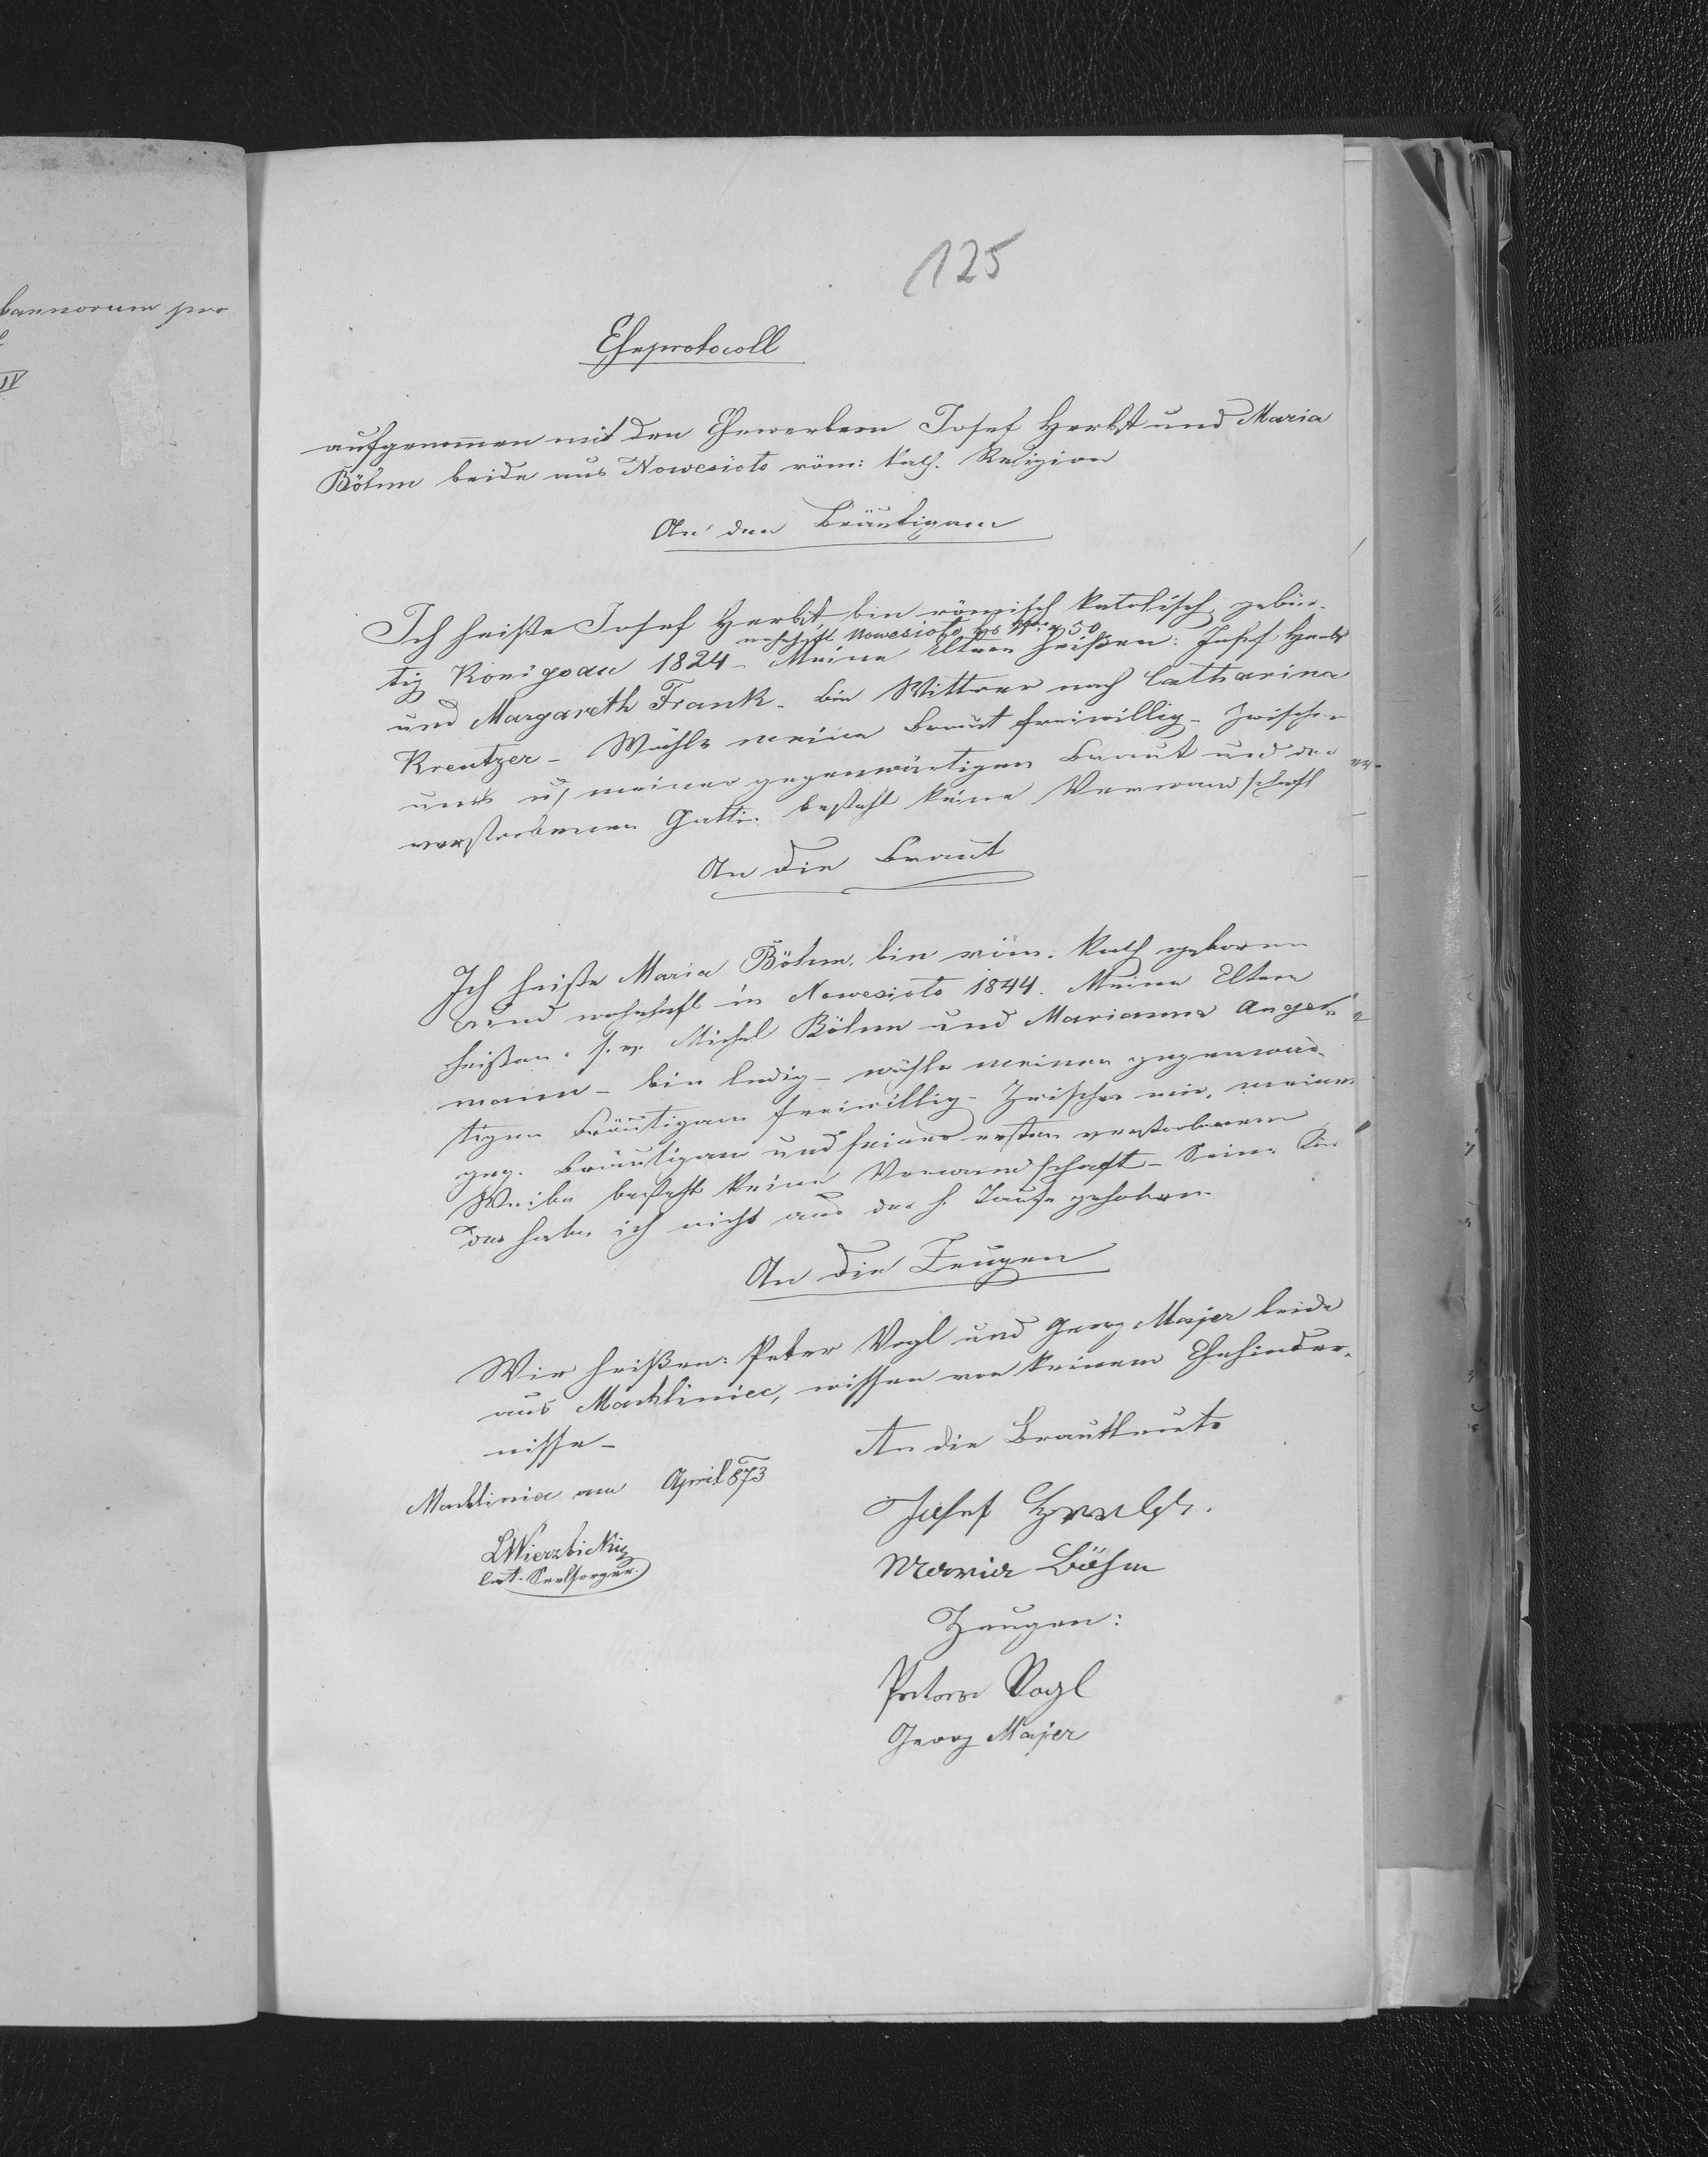 bannorum pro
IV
125
Eheprotocoll
aufgenommen mit den Ehewerbern Josef Herbst und Maria
Böhm beide aus Nowesioto röm: kath. Religion
An den Bräutigam
Ich heiße Josef Herbst, bin römisch katolisch, gebür-
wohnhaft Nowesioto 50
tig Königsau 1824 - Meine Eltern heißen: Josef Herbst
und Margareth Frank - bin Wittwer nach Catharina
Kreutzer - Wähle meine Braut freiwillig - Zwischen
uns u meiner gegenwärtigen Braut und der
verstorbenen Gattin besteht keine Verwandschaft
An die Braut
Ich heiße Maria Böhm, bin röm. kath geboren
und wohnhaft in Nowesioto 1844. Meine Eltern
heißen: Michel Böhm und Marianna Anger-
mann - bin ledig - wähle meinen gegenwär-
tigen Bräutigam freiwillig - Zwischen mir, meinem
geg. Bräutigam und seiner ersten verstorbenen
Weibe besteht keine Verwandschaft - Seine Kin
der habe ich nicht aus der h. Taufe gehoben.
An die Zeugen
Wir heißen: Peter Vogl und Georg Majer beide
aus Machliniec, wissen von keinem Ehehinder-
nisse -
An die Brautleute
Machliniec am April 873
Josef Herbst.
LWierzbicki
Seelsorger
Maria Böhm
Zeugen:
Peter Vogl
Georg Majer